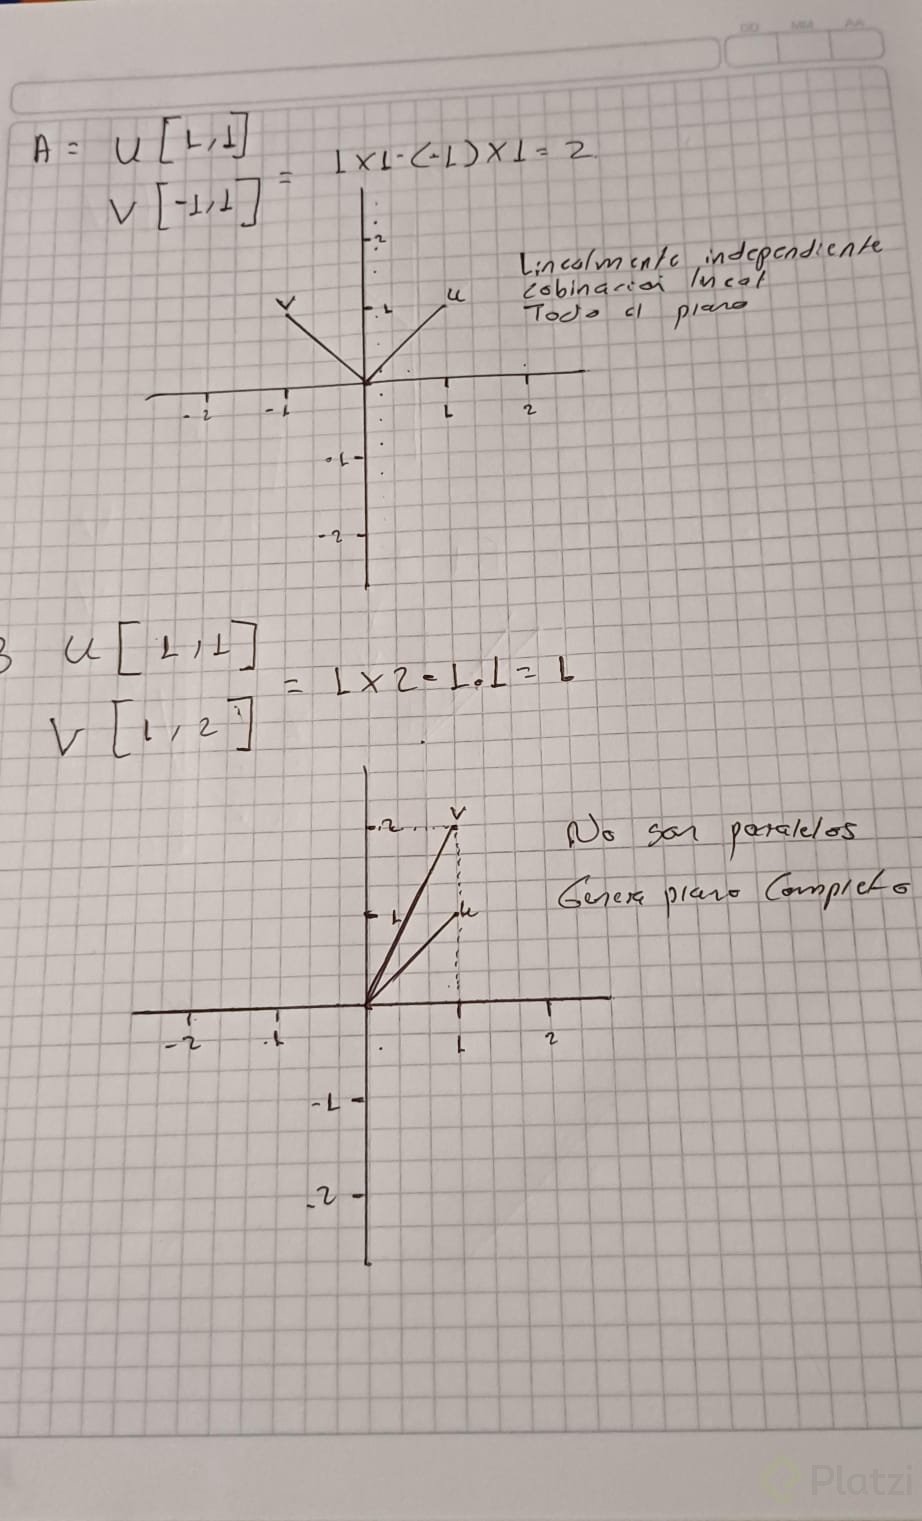 DD MM AA
A = u [1,1]
= 1x1-(-1)x1=2
v [-1,1]
2
Linealmente independiente
cobinacion lineal
Todo el plano
v 1 u
-2 -1 1 2
-1
-2
B u [1,1]
= 1x2-1.1=1
v [1,2]
2 v
No son paralelos
1 u
Genera plano Completo
-2 -1 1 2
-1
-2
Platzi